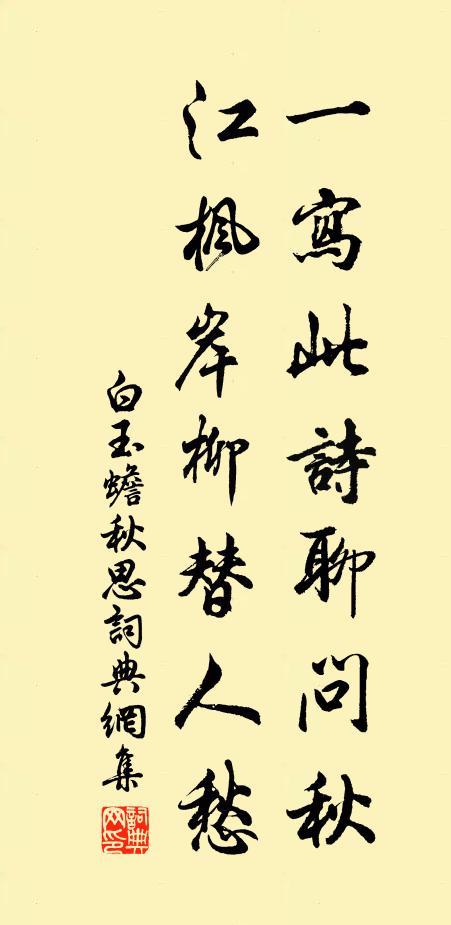 一寫此詩聊問秋
江楓岸柳替人愁
白玉蟾秋思詞典網集
詞典網印